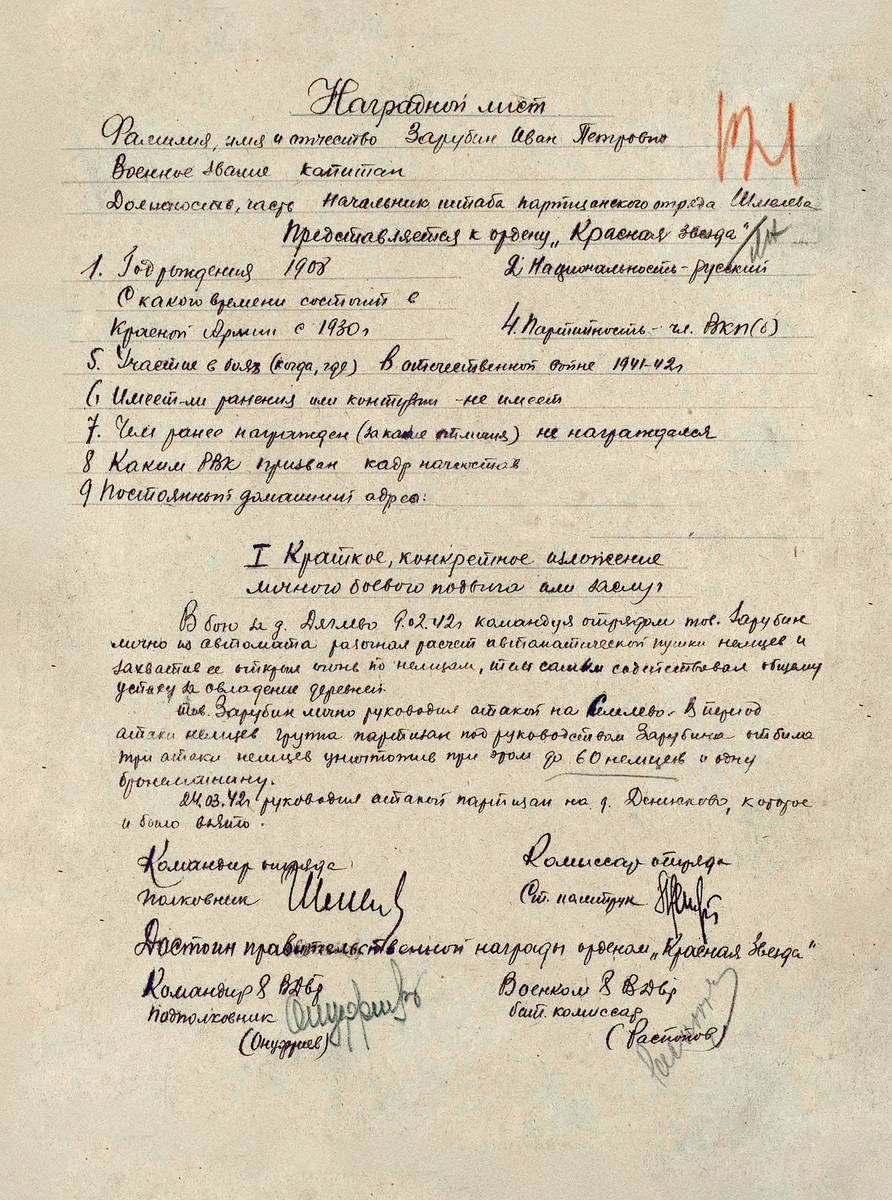 Наградной лист
Фамилия, имя и отчество Зарубин Иван Петрович
Военное звание капитан
Должность, часть Начальник штаба партизанского отряда Шмелева
Представляется к ордену „Красная звезда“
1. Год рождения 1908 2. Национальность - русский
С какого времени состоит в
Красной Армии с 1930г 4. Партийность - чл. ВКП(б)
5. Участие в боях (когда, где) В отечественной войне 1941-42г
6, Имеет-ли ранения или контузии - не имеет
7. Чем ранее награжден (за какие отличия) не награждался
8 Каким РВК призван кадр начсостав
9 Постоянный домашний адрес:
I Краткое, конкретное изложение
личного боевого подвига или заслуг
В бою за д. Дяглево 9.02.42г командуя отрядом тов. Зарубин
лично из автомата разогнал расчет автоматической пушки немцев и
захватив ее открыл огонь по немцам, тем самым содействовал общему
успеху за овладение деревней.
тов. Зарубин лично руководил атакой на Семлево. В период
атаки немцев группа партизан под руководством Зарубина отбила
три атаки немцев уничтожив при этом до 60 немцев и одну
бронемашину.
24.03.42г руководил атакой партизан на д. Денисково, которое
и было взято.
Командир отряда Комиссар отряда
Полковник Ст. политрук
Достоин правительственной награды орденом „Красная Звезда“
Командир 8 ВДбр Военком 8 ВДбр
подполковник Онуфриев бат. комиссар
(Онуфриев) (Распопов)